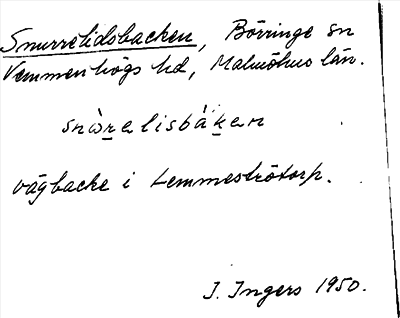 Snurrelidsbacken, Börringe sn
Vemmenhögs hd, Malmöhus län.
snùrelisbákan
vägbacke i Lemmeströtorp.
I. Ingers 1950.